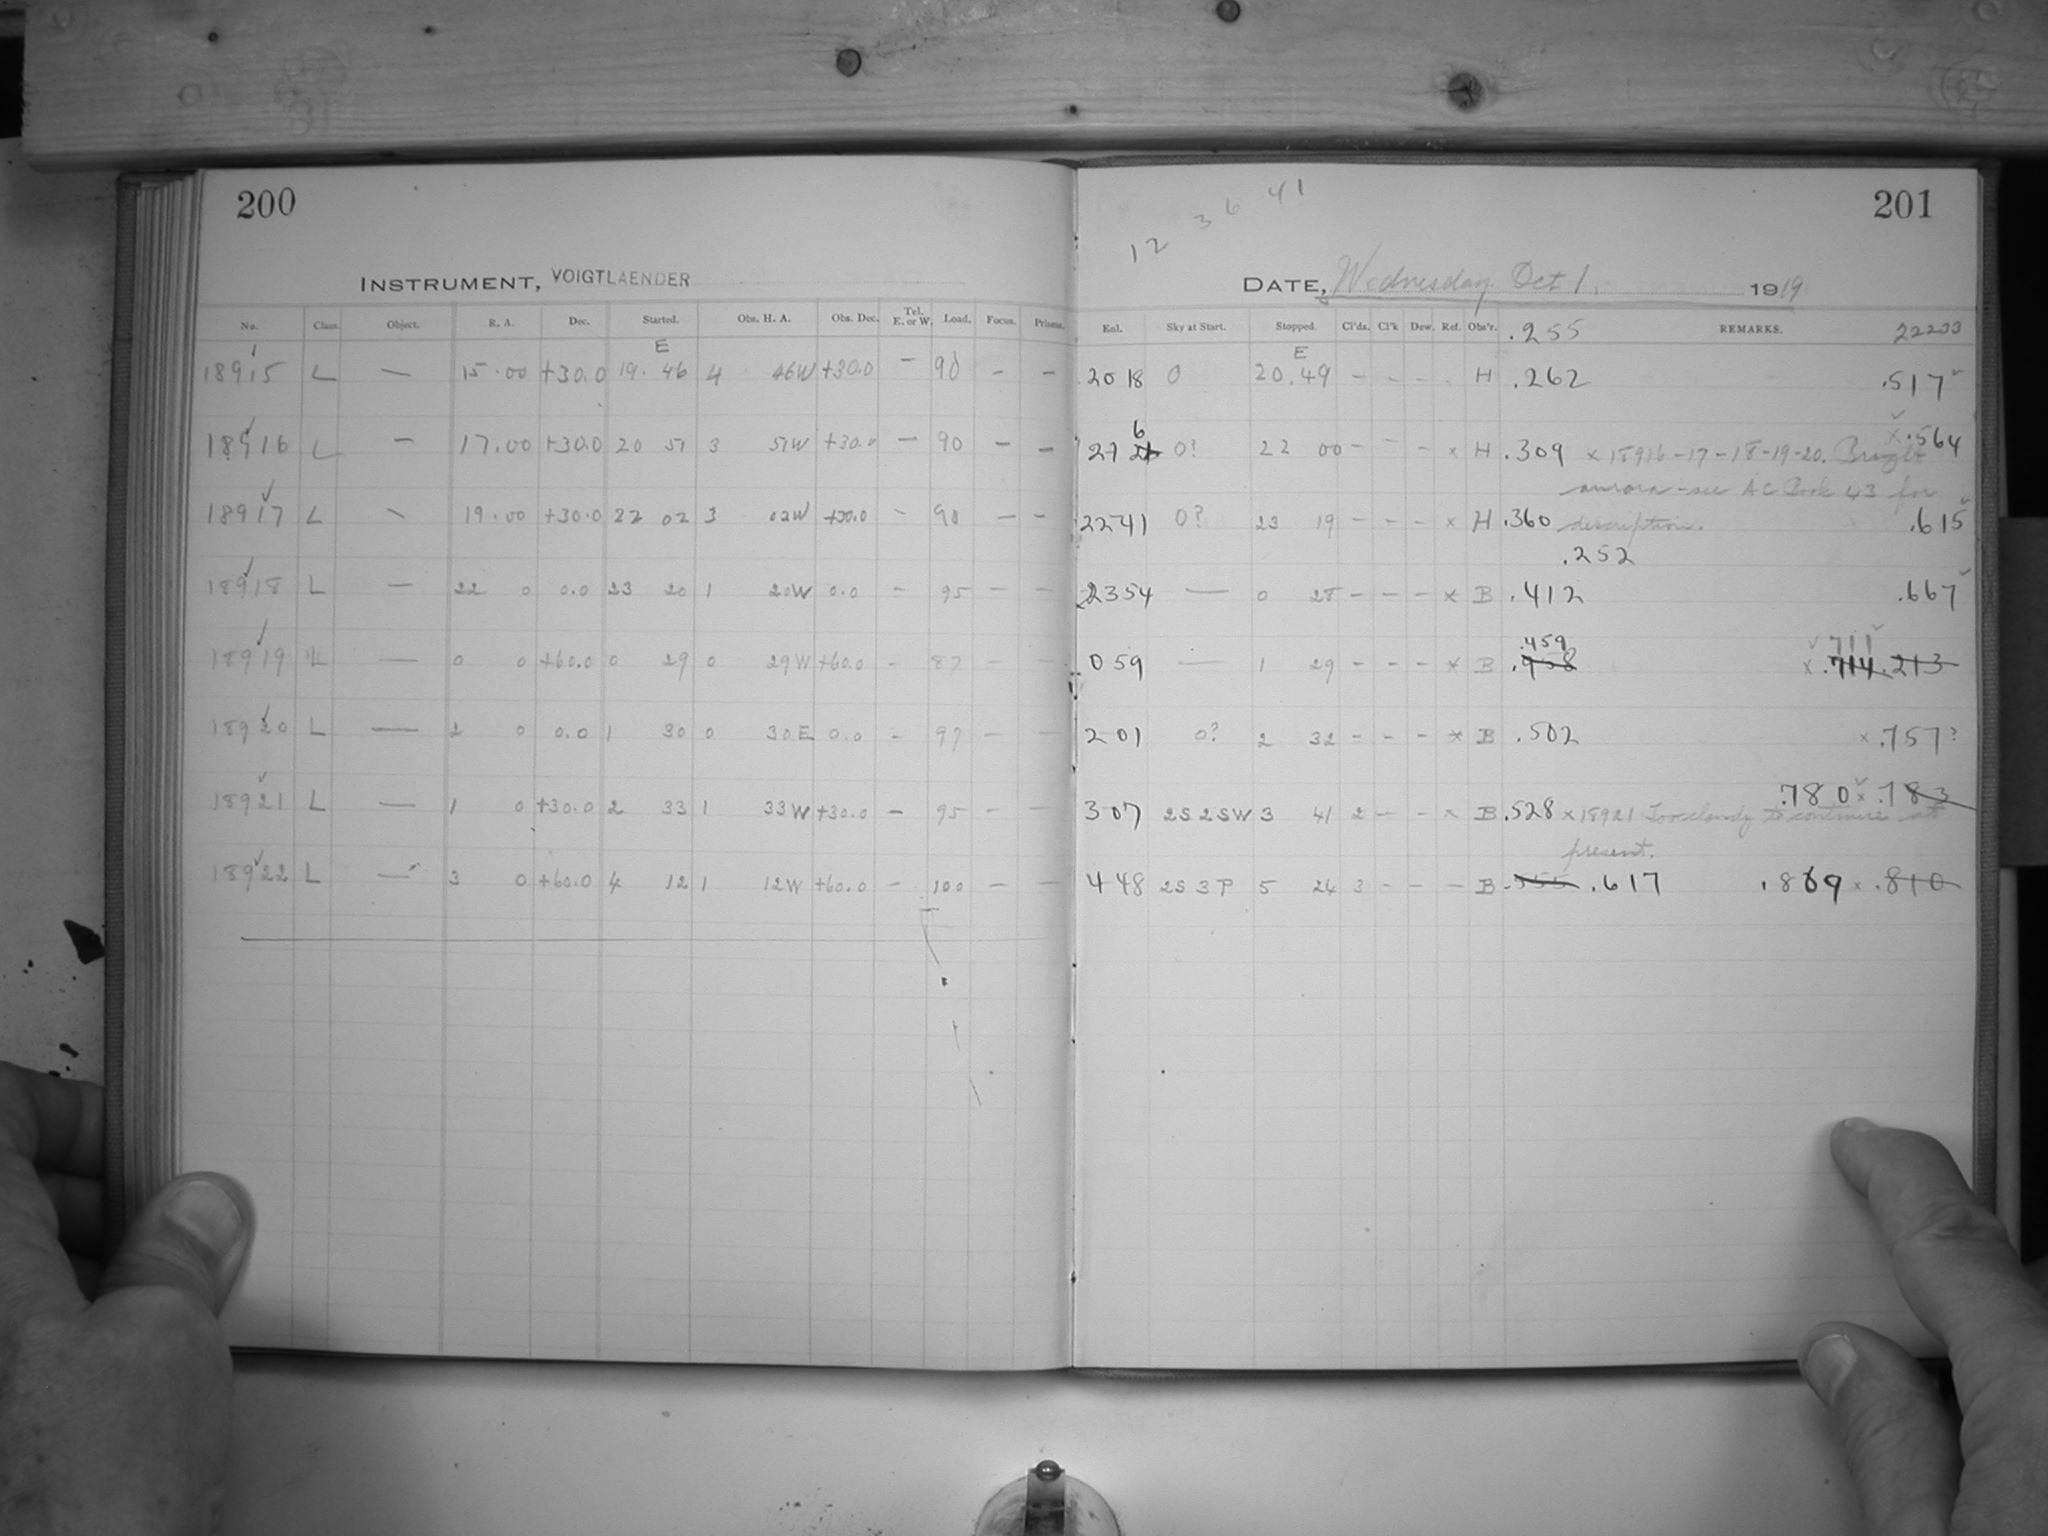 200
201
12 3 6 41
INSTRUMENT, VOIGTLAENDER
DATE, Wednesday Oct 1. 1919
No. Class. Object. R. A. Dec. Started. Obs. H. A. Obs. Dec. Tel. E. or W. Load. Focus. Prisms. Enl. Sky at Start. Stopped. Cl'ds. Cl'k Dew. Ref. Obs'r. .255 REMARKS. 22233
E E
18915 L — 15.00 +30.0 19.46 4 46W +30.0 — 90 — — 2018 0 20.49 - - - . H .262 .517
6
18916 L — 17.00 +30.0 20 51 3 51W +30.0 — 90 — — 27 0? 22 00 - - - x H .309 x 18916-17-18-19-20. Bright x .564
aurora - see AC Book 43 for
18917 L - 19.00 +30.0 22 02 3 02W +30.0 - 90 — - 2241 0? 23 19 - - - x H .360 description. .615
.252
18918 L — 22 0 0.0 23 20 1 20W 0.0 - 95 - - 2354 — 0 28 - - - x B .412 .667
.459 .711
18919 L — 0 0 +60.0 0 29 0 29W +60.0 - 87 - - 059 — 1 29 - - - x B x .714 .213
18920 L — 2 0 0.0 1 30 0 30E 0.0 - 97 - - 201 0? 2 32 - - - x B .502 x .757?
.780 x .783
18921 L — 1 0 +30.0 2 33 1 33W +30.0 - 95 - - 307 2S 2SW 3 41 2 - - x B .528 x 18921 Too cloudy to continue at
present.
18922 L — 3 0 +60.0 4 12 1 12W +60.0 - 100 - - 448 2S 3P 5 24 3 - - - B .555 .617 .869 x .810